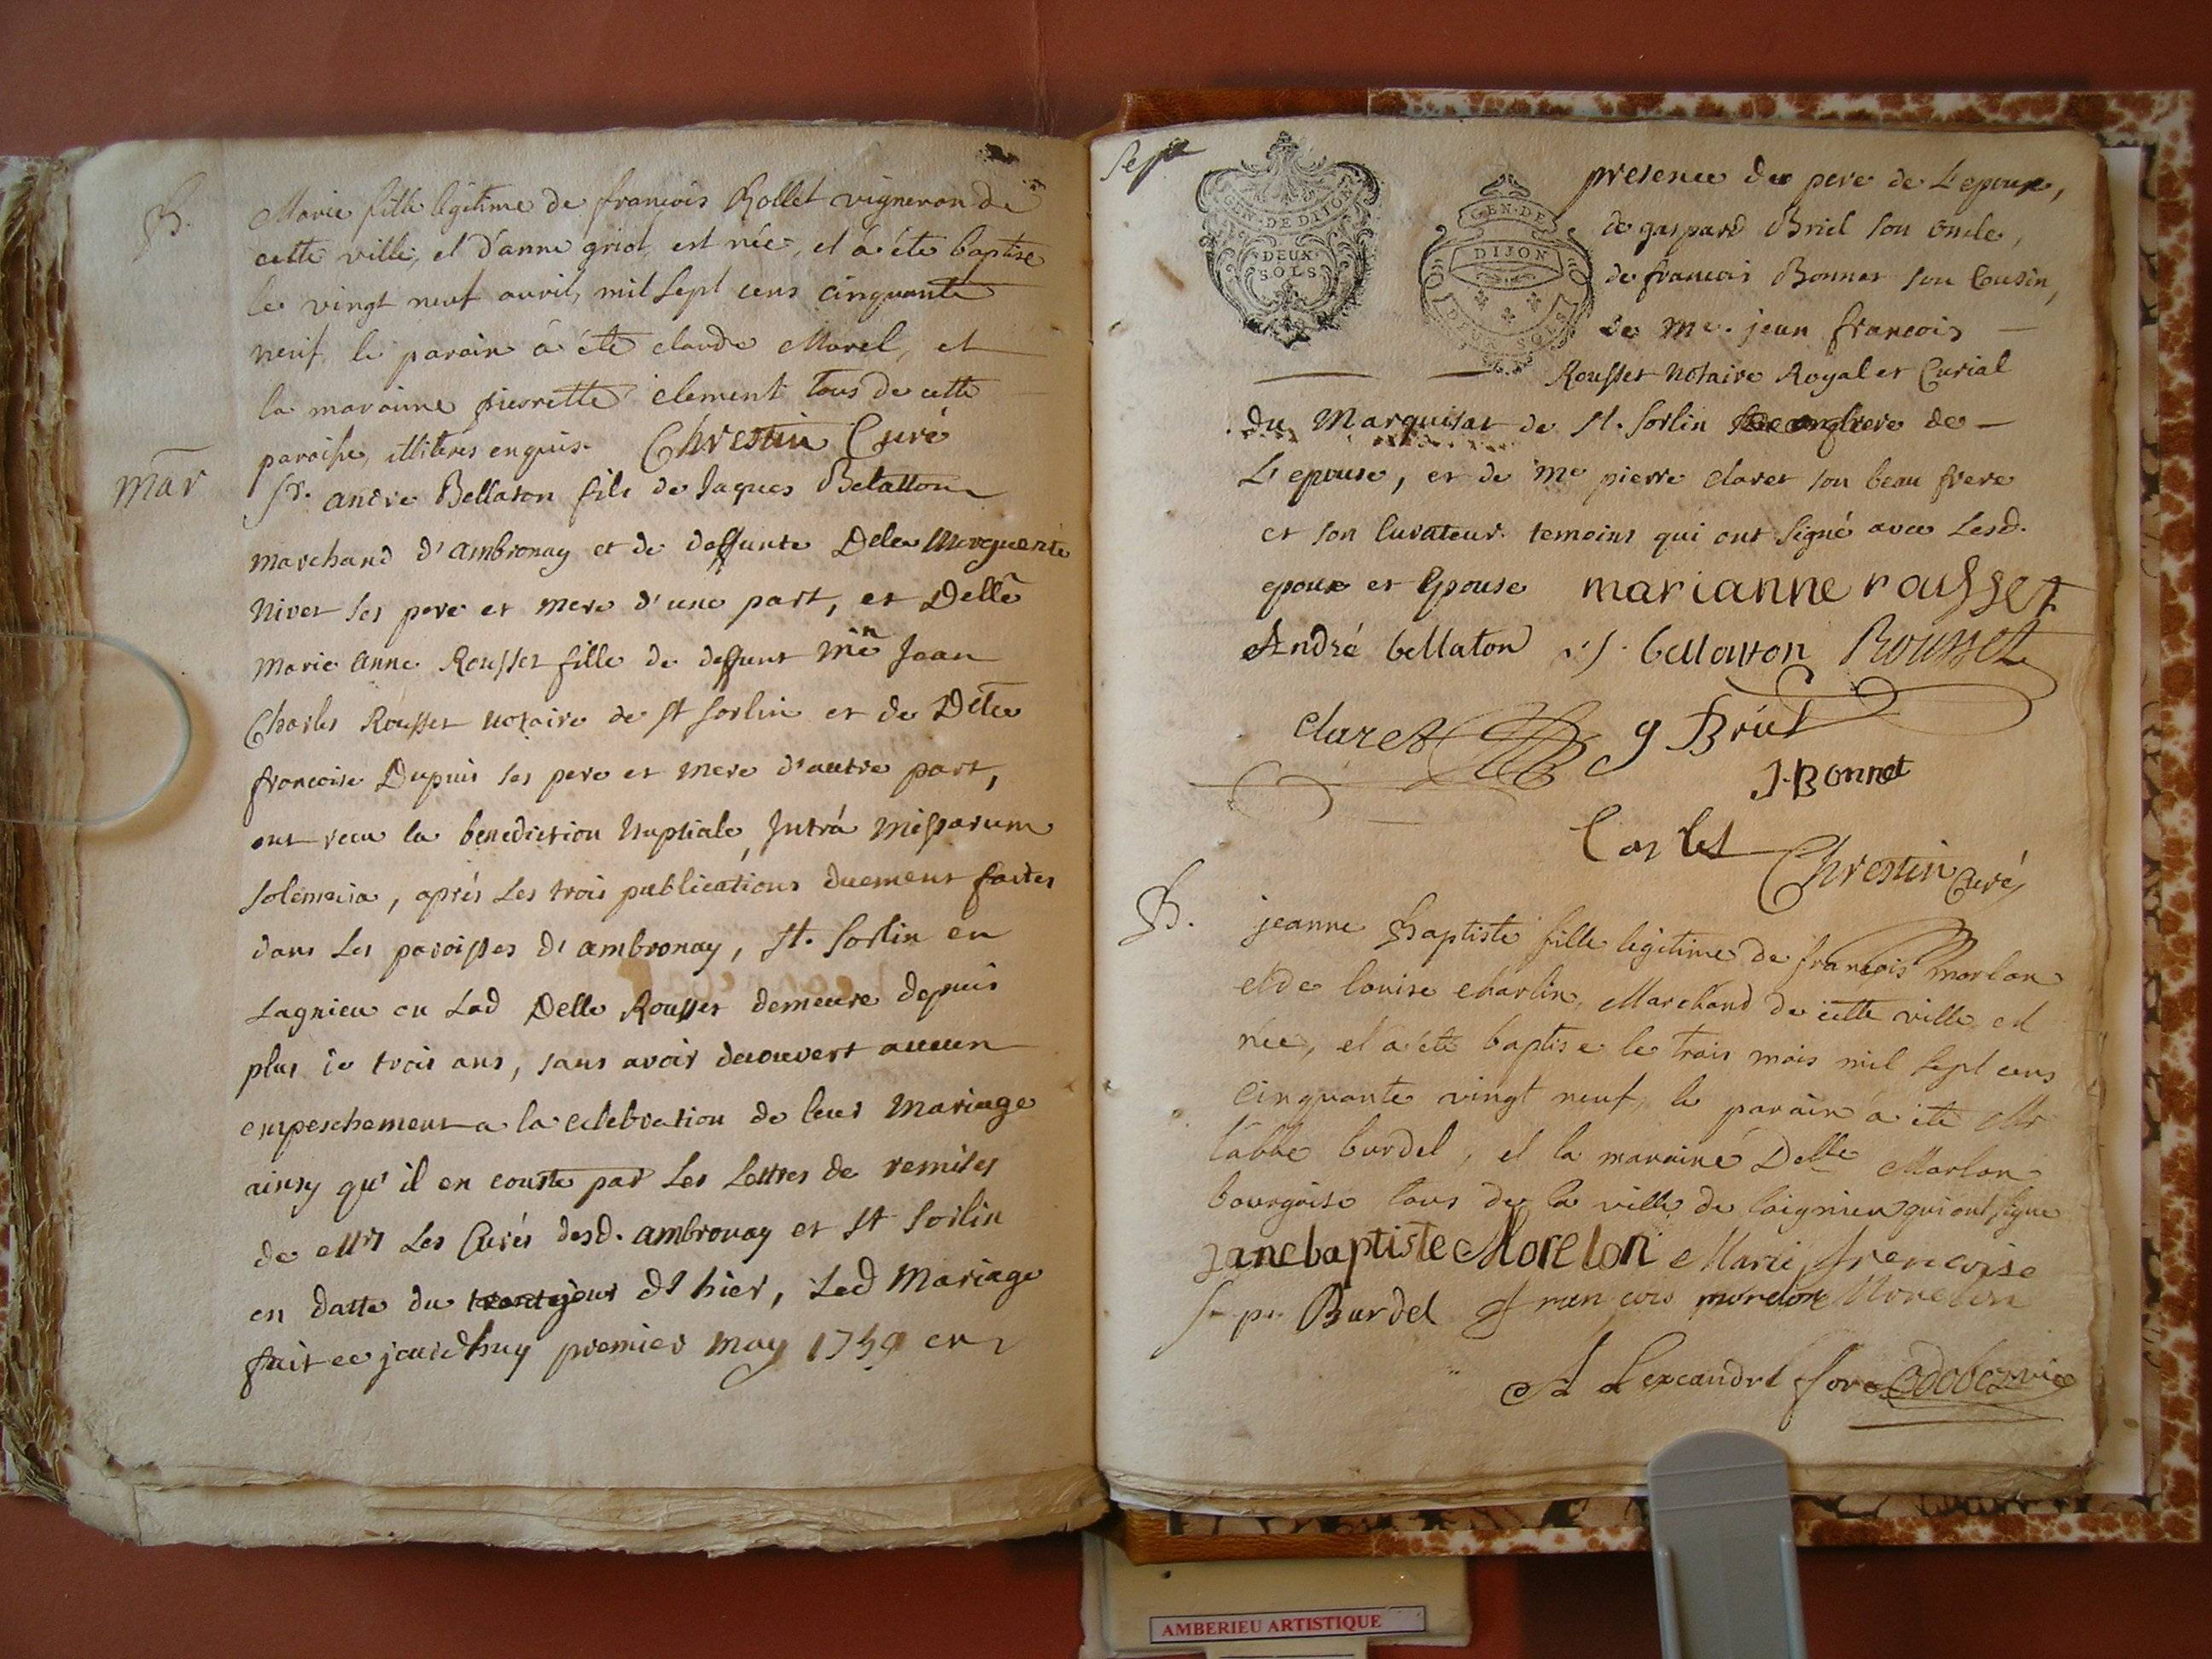 B.
Marie fille legitime de francois Rollet vigneron de
cette ville, et d'anne griot, est née, et a été baptise
le vingt neuf avril, mil sept cens cinquante
neuf, le parain a été claude Morel, et
la maraine pierrette clement tous de cette
paroisse, illiteres enquis. Chrestin Curé
mar
Sr. andre Bellaton fils de Jaques Belatton
marchand d'ambronay et de deffunte Delle Marguerite
Nivet ses pere et mere d'une part, et Delle
marie anne Rousset fille de deffunt Me Jean
Charles Rousset notaire de st sorlin et de Delle
francoise Dupuis ses pere et mere d'autre part,
ont recu la benediction Nuptiale, Jntrá missarum
solemnia, aprés Les trois publications duement faites
dans Les paroisses d'ambronay, st. sorlin en
Lagnieu ou Lad Delle Rousset demeure depuis
plus de trois ans, sans avoir decouvert aucun
empeschement a la celebration de leur mariage
ainsy qu'il en conste par Les Lettres de remises
de Mrs Les Curés desd. ambronay et st sorlin
en datte du jour d'hier, Led mariage
fait ce jourdhuy premier may 1759 en
Sept
GEN·DE DIJON
DEUX
SOLS
GEN·DE
DIJON
DEUX SOLS
presence du pere de L'epoux,
de gaspard Briel son oncle,
de francois Bonnet son Cousin,
de Me. jean francois
Rousset Notaire Royal et Curial
du Marquisat de st. sorlin frere de
L'epouse, et de Me pierre claret son beau frere
et son Curateur. temoins qui ont signé avec Lesd.
epoux et Epouse marianne rousset
André bellaton J. bellatton Rousset
claret g Briel
J. Bonnet
Carlet
Chrestin Curé,
B.
jeanne Baptiste fille legitime de françois morlon
et de louise charlin, Marchand de cette ville, est
née, et a été baptise le trois mois mil sept cens
cinquante vingt neuf, le parain a été Mr
l'abbé burdel, et la maraine Delle Marlon
bourgoise tous de la ville de laignieu qui ont signé
Janebaptiste Morelon Marie francoise
Burdel françois morelon Morelon